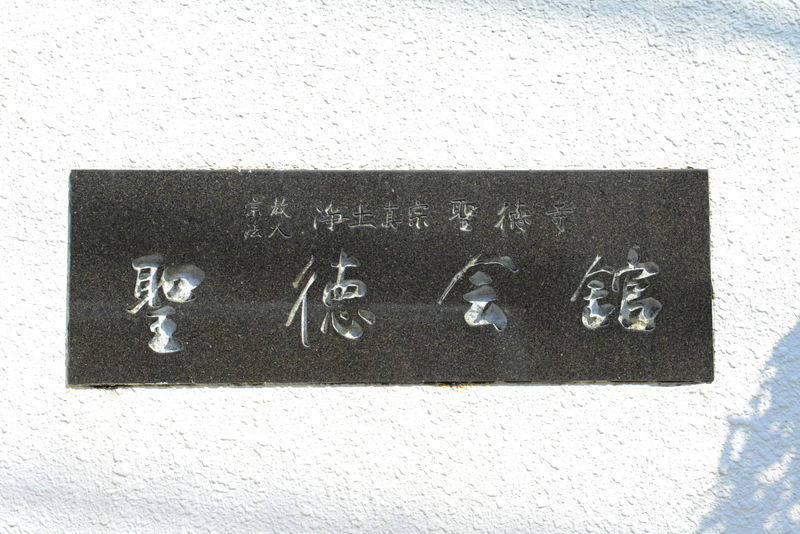 宗教法人 浄土真宗 聖徳寺
聖徳会館